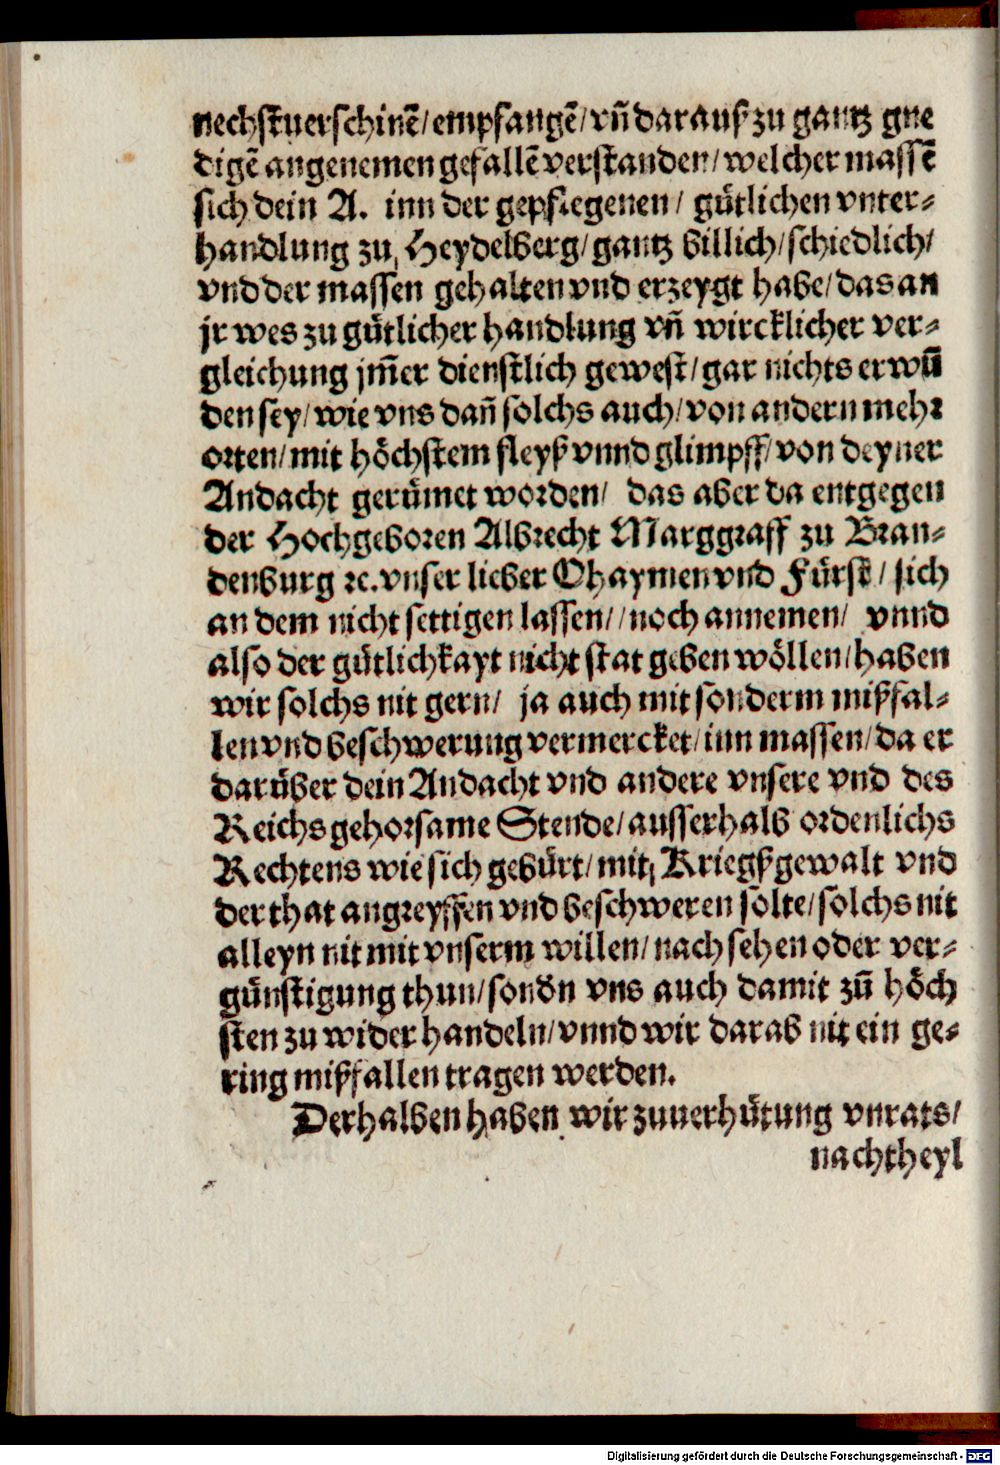 nechstuerschinẽ/empfangẽ/vñ darauß zu gantz gne
digẽ angenemen gefallẽ verstanden/welcher massẽ
sich dein A. inn der gepflegenen/ gütlichen vnter-
handlung zu Heydelberg/gantz billich/schiedlich/
vnd der massen gehalten vnd erzeygt habe/das an
jr wes zu gütlicher handlung vñ wircklicher ver-
gleichung jm̃er dienstlich gewest/gar nichts erwũ
den sey/wie vns dañ solchs auch/von andern mehr
orten/mit höchstem fleyß vnnd glimpff/von deyner
Andacht gerümet worden/ das aber da entgegen
der Hochgeboren Albrecht Marggraff zu Bran-
denburg ꝛc. vnser lieber Ohaymen vnd Fürst/ sich
an dem nicht settigen lassen//noch annemen/ vnnd
also der gütlichkayt nicht stat geben wöllen/haben
wir solchs nit gern/ ja auch mit sonderm mißfal-
len vnd beschwerung vermercket/inn massen/da er
darüber dein Andacht vnd andere vnsere vnd des
Reichs gehorsame Stende/ausserhalb ordenlichs
Rechtens wie sich gebürt/mit Kriegßgewalt vnd
der that angreyffen vnd beschweren solte/solchs nit
alleyn nit mit vnserm willen/nach sehen oder ver-
günstigung thun/sondn vns auch damit zũ höch
sten zu wider handeln/vnnd wir darab nit ein ge-
ring mißfallen tragen werden.
Derhalben haben wir zuuerhütung vnrats/
nachtheyl
Digitalisierung gefördert durch die Deutsche Forschungsgemeinschaft - DFG